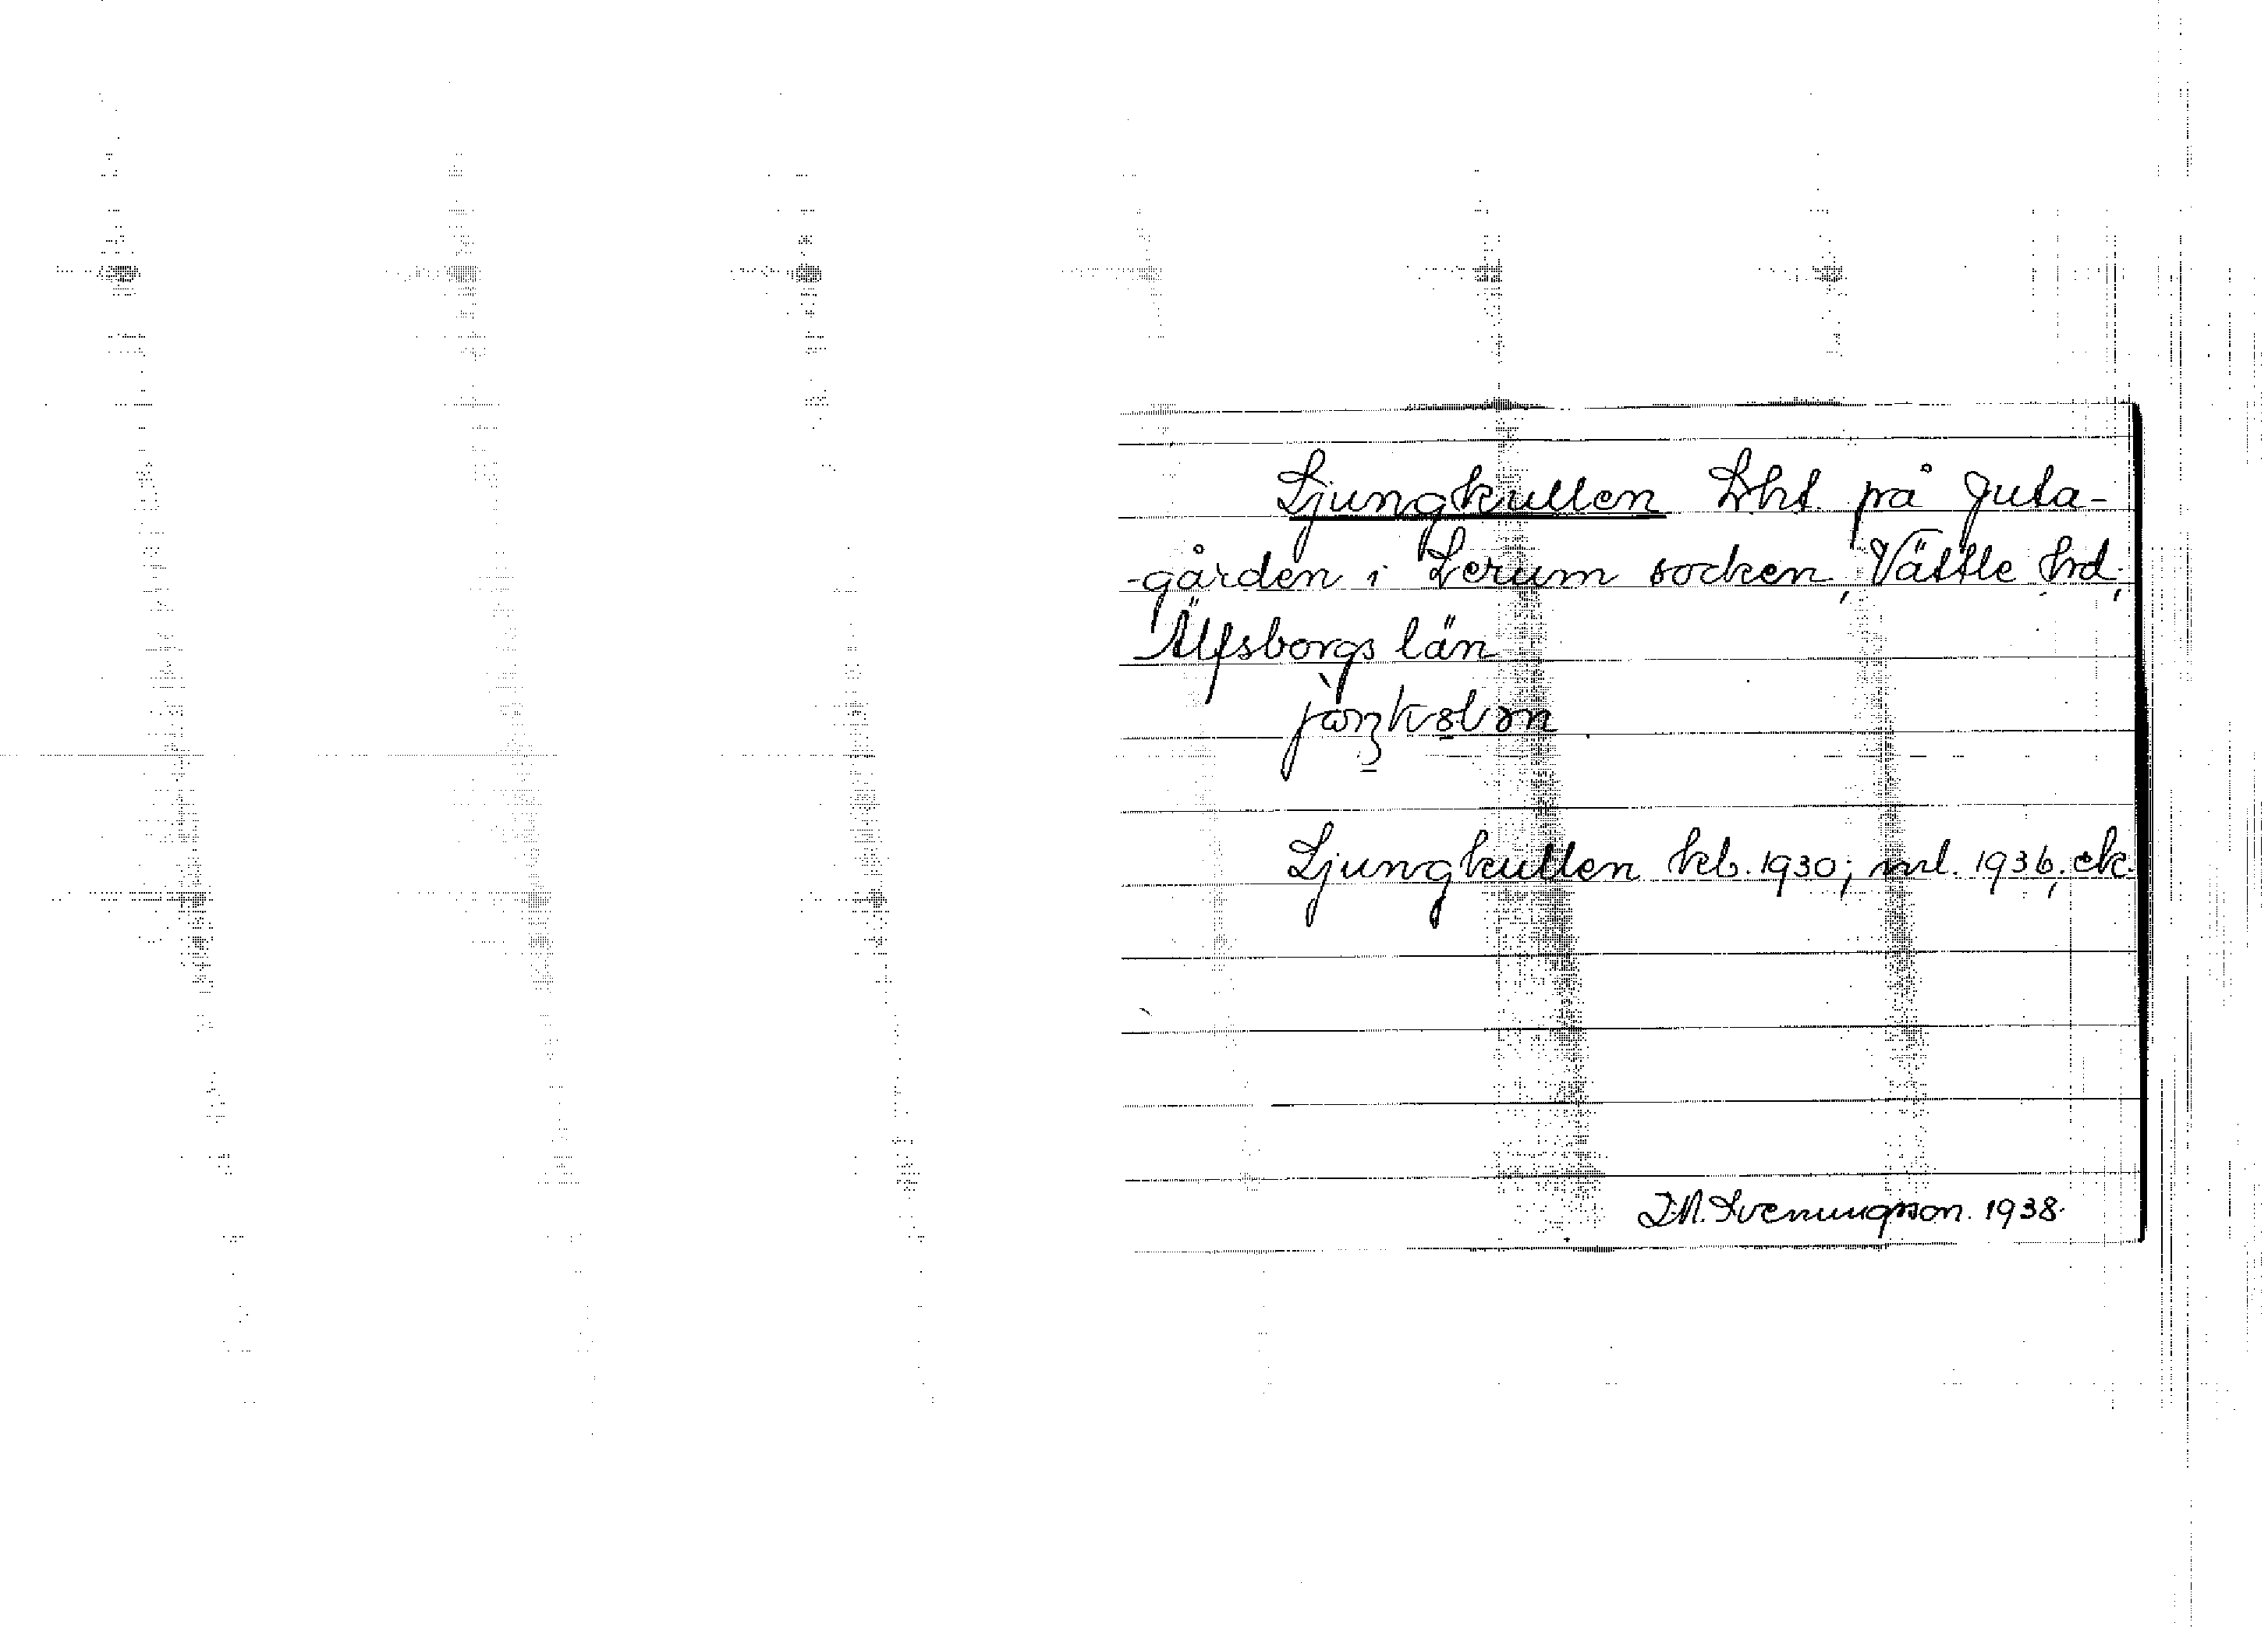 Ljungkullen Lht. på Juta-
-gården i Lerum socken, Vättle hrd,
Älfsborgs län
Ljungkullen kb. 1930; ml. 1936, etc.
J.M. Svenungsson. 1938.